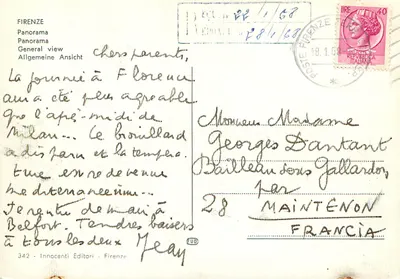 FIRENZE
Panorama
Panorama
General view
Allgemeine Ansicht
Chers parents,
La journée à Florence
aura été plus agréable
que l'après-midi de
Milan... Le brouillard
a disparu et la tempéra-
ture est redevenue
méditerranéenne...
Je rentre demain à
Belfort. Tendres baisers
à tous les deux Jean
342 - Innocenti Editori - Firenze
22/1/68
28/1/68
POSTE FIRENZE
18.1.68
LIRE 40
Monsieur Madame
Georges Dantant
Bailleau sous Gallardon
par
28 MAINTENON
FRANCIA